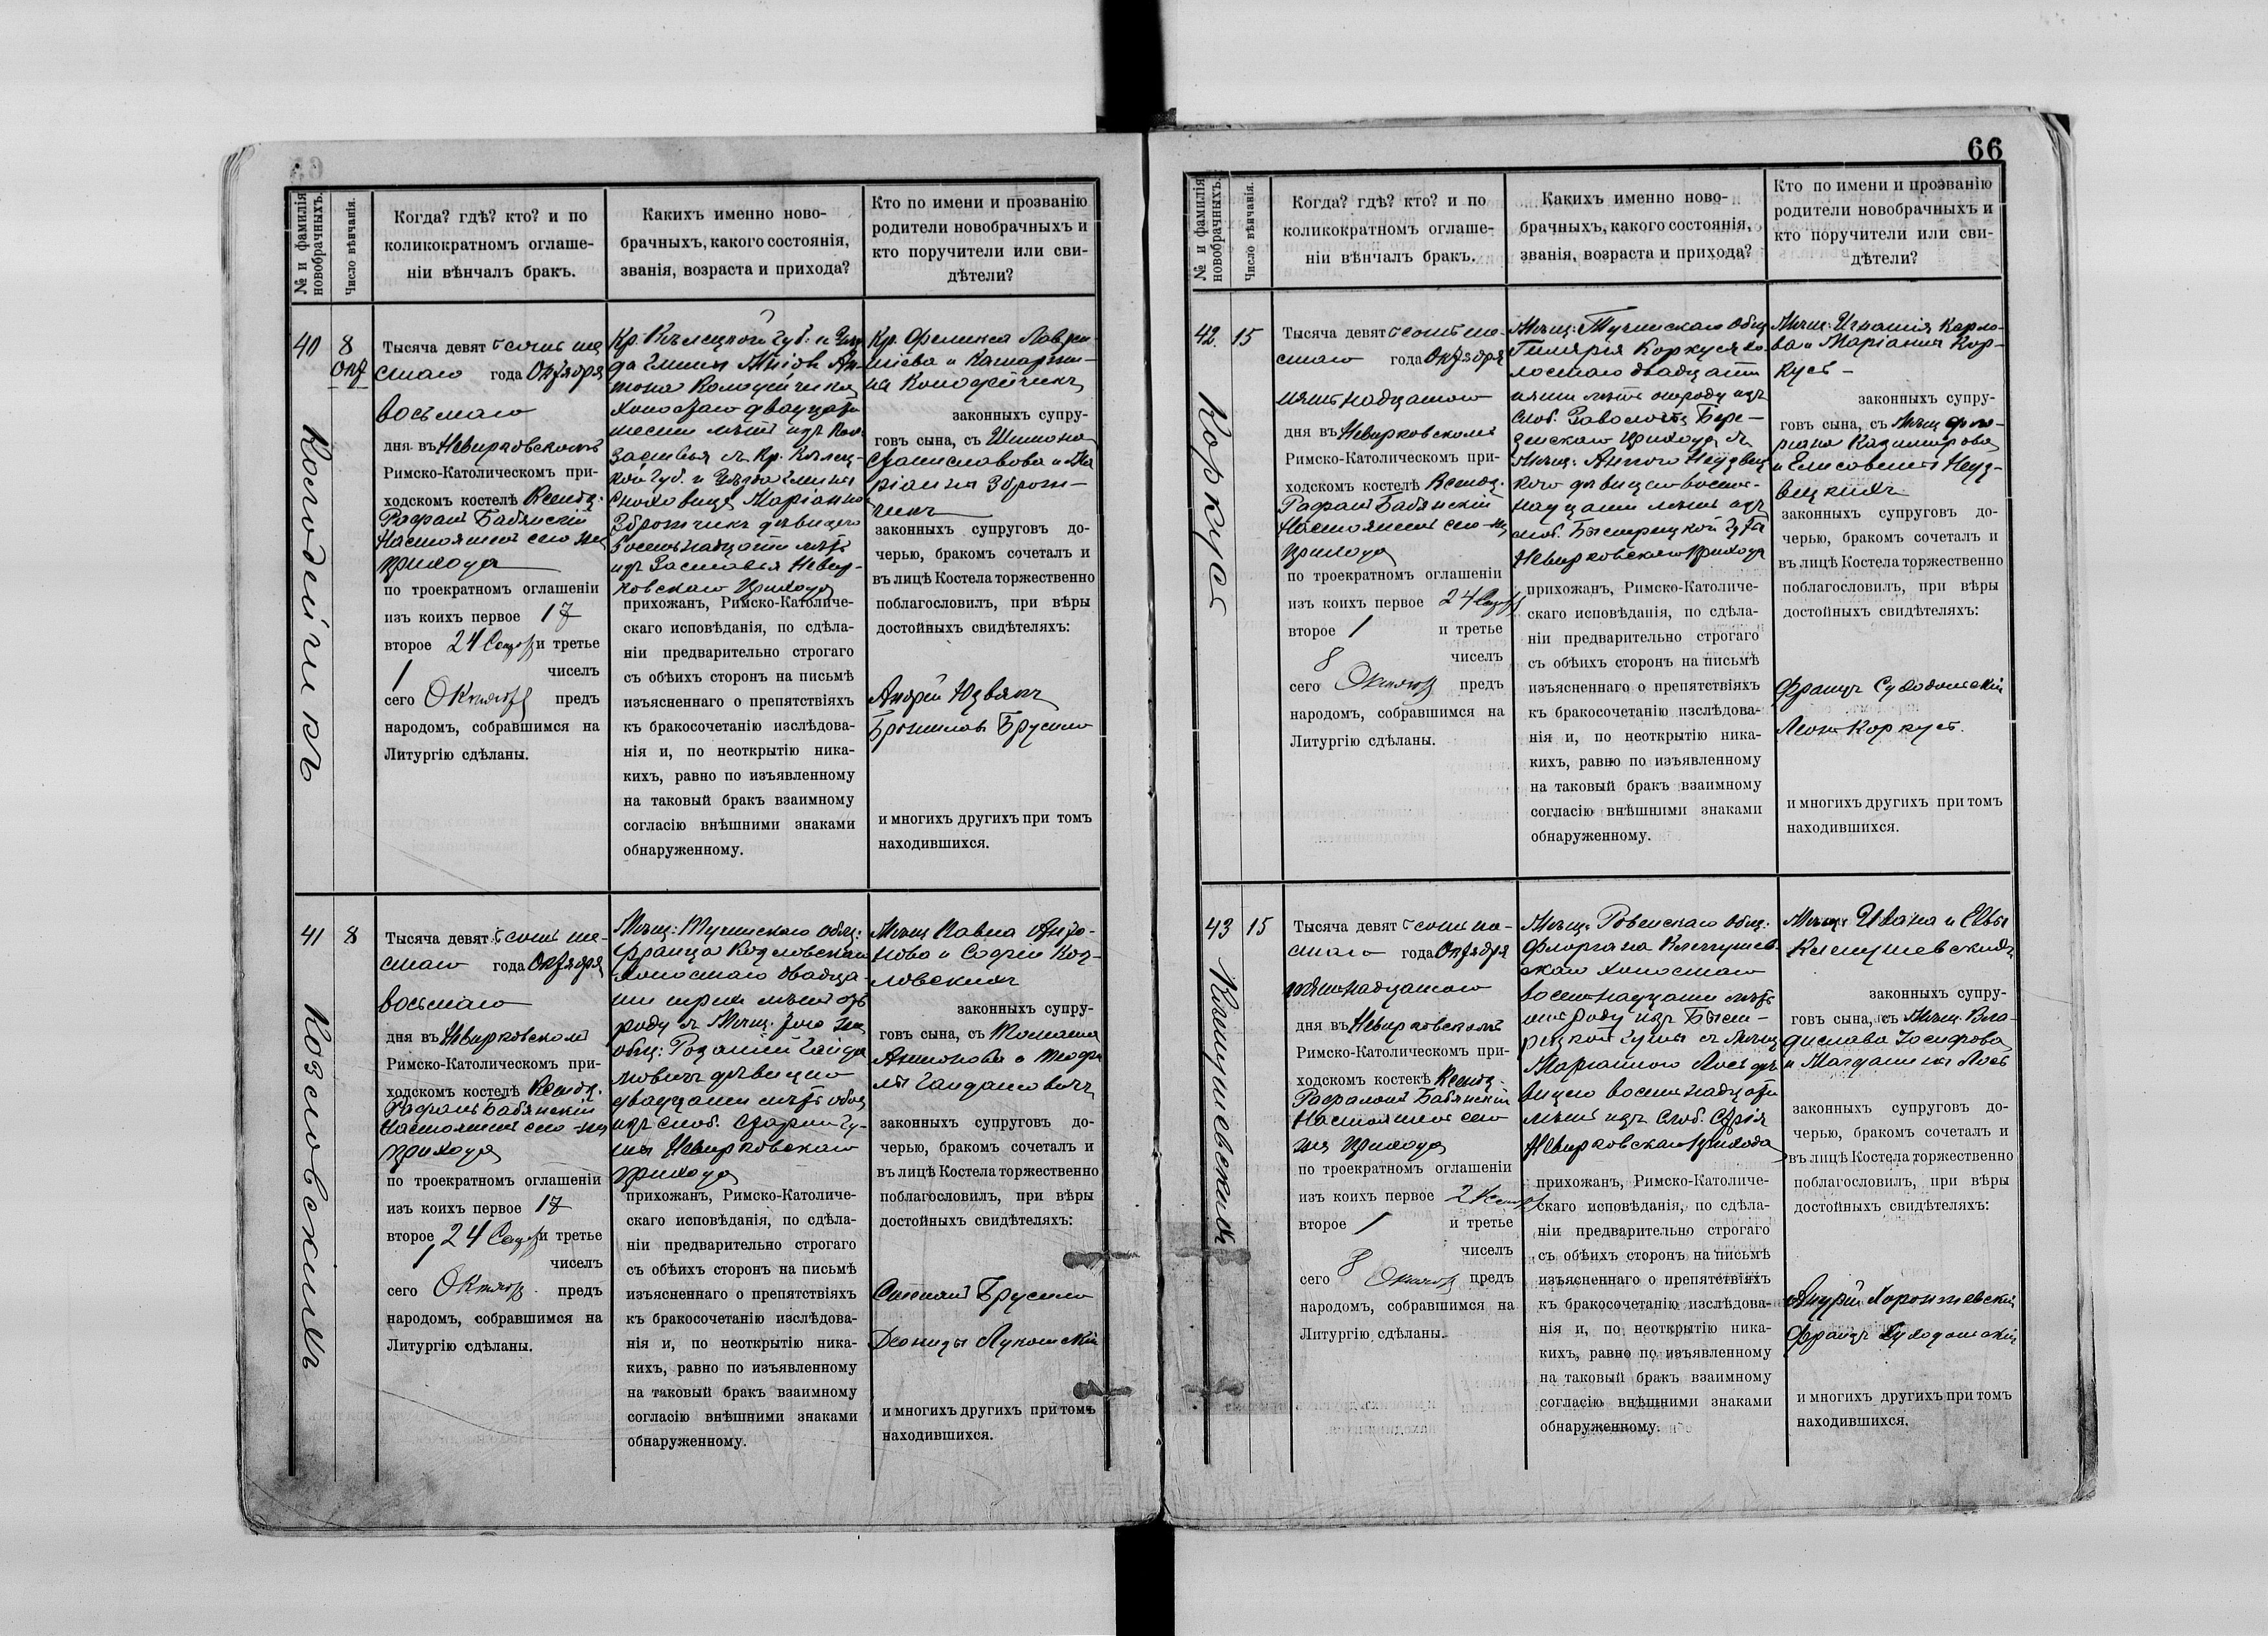 № и фамилія
новобрачныхъ.
Число вѣнчанія.
Когда? гдѣ? кто? и по
коликократномъ оглаше-
ніи вѣнчалъ бракъ.
Какихъ именно ново-
брачныхъ, какого состоянія,
званія, возраста и прихода?
Кто по имени и прозванію
родители новобрачныхъ и
кто поручители или сви-
дѣтели?
40
8
Окт
Тысяча девятсотъ ше
стаго года Октября
восьмаго
дня въ Невирковскомъ
Римско-Католическомъ при-
ходскомъ костелѣ Ксендз.
Рафаил Бабянскій
Настоятель сего же
прихода
по троекратномъ оглашеніи
изъ коихъ первое 17
второе 24 и третье
1 чиселъ
сего Октября предъ
народомъ, собравшимся на
Литургію сдѣланы.
Кр. Кѣлецкой Губ: и
Антона
холостаго двадцати
шести лѣтъ изъ
съ Кр. Кѣлец-
кой Губ. и Уѣзда Гмины
Маріанною
дѣвицею
восемнадцати лѣтъ
изъ Заставья Невир-
ковскаго прихода
прихожанъ, Римско-Католиче-
скаго исповѣданія, по сдѣла-
ніи предварительно строгаго
съ обѣихъ сторонъ на письмѣ
изъясненнаго о препятствіяхъ
къ бракосочетанію изслѣдова-
нія и, по неоткрытію ника-
кихъ, равно по изъявленному
на таковый бракъ взаимному
согласію внѣшними знаками
обнаруженному.
Кр. Феликса Лаврен-
тіева и Катаржи-
ны
законныхъ супру-
говъ сына, съ Шимона
Станиславова и Ма
ріанны Зброж-
чикъ
законныхъ супруговъ до-
черью, бракомъ сочеталъ и
въ лицѣ Костела торжественно
поблагословилъ, при вѣры
достойныхъ свидѣтеляхъ:
Андрей Юзвякъ
Брониславъ Брусило
и многихъ другихъ при томъ
находившихся.
41
8
Козловскихъ
Тысяча девятсотъ ше-
стаго года Октября
восьмаго
дня въ Невирковскомъ
Римско-Католическомъ при-
ходскомъ костелѣ Ксендз.
Рафаилъ Бабянскій
Настоятель сего же
прихода
по троекратномъ оглашеніи
изъ коихъ первое 17
второе 24 и третье
1 чиселъ
сего Октября предъ
народомъ, собравшимся на
Литургію сдѣланы.
Мѣщ: Тучинскаго общ:
Франца Козловскаго
холостаго двадца-
ти трехъ лѣтъ отъ
роду съ Мѣщ. того же
общ: Розаліей Гайда
мовичъ дѣвицею
двадцати лѣтъ
изъ слоб. Старой Гу-
ты Невирковскаго
прихода
прихожанъ, Римско-Католиче-
скаго исповѣданія, по сдѣла-
ніи предварительно строгаго
съ обѣихъ сторонъ на письмѣ
изъясненнаго о препятствіяхъ
къ бракосочетанію изслѣдова-
нія и, по неоткрытію ника-
кихъ, равно по изъявленному
на таковый бракъ взаимному
согласію внѣшними знаками
обнаруженному.
Мѣщ Павла
и Софіи Коз-
ловскихъ
законныхъ супру-
говъ сына, съ Томаша
Антонова и
законныхъ супруговъ до-
черью, бракомъ сочеталъ и
въ лицѣ Костела торжественно
поблагословилъ, при вѣры
достойныхъ свидѣтеляхъ:
Брусило
и многихъ другихъ при томъ
находившихся.
66
№ и фамилія
новобрачныхъ.
Число вѣнчанія.
Когда? гдѣ? кто? и по
коликократномъ оглаше-
ніи вѣнчалъ бракъ.
Какихъ именно ново-
брачныхъ, какого состоянія,
званія, возраста и прихода?
Кто по имени и прозванію
родители новобрачныхъ и
кто поручители или сви-
дѣтели?
42.
15
Коркус
Тысяча девятсотъ ше-
стаго года Октября
пятнадцатого
дня въ Невирковскомъ
Римско-Католическомъ при-
ходскомъ костелѣ Ксендз.
Рафаил Бабянскій
Настоятель сего же
прихода
по троекратномъ оглашеніи
изъ коихъ первое 24
второе 1 и третье
8 чиселъ
сего Октября предъ
народомъ, собравшимся на
Литургію сдѣланы.
Мѣщ: Тучинскаго Общ
Гилярія Коркуса хо-
лостаго двадцати
пяти лѣтъ отъ роду изъ
слоб. Заволоче Бере-
знскаго прихода съ
Мѣщ: Анною Недзвец
кого дѣвицею восем-
надцати лѣтъ изъ
слоб. Быстрицкой Гута
Невирковскаго прихода
прихожанъ, Римско-Католиче-
скаго исповѣданія, по сдѣла-
ніи предварительно строгаго
съ обѣихъ сторонъ на письмѣ
изъясненнаго о препятствіяхъ
къ бракосочетанію изслѣдова-
нія и, по неоткрытію ника-
кихъ, равно по изъявленному
на таковый бракъ взаимному
согласію внѣшними знаками
обнаруженному.
Мѣщ: Игнатія Карло-
ва и Маріанны Кор-
кусъ -
законныхъ супру-
говъ сына, съ Мѣщ Фло-
ріана Казимірова
и Елисаветы Недз-
вецкихъ
законныхъ супруговъ до-
черью, бракомъ сочеталъ и
въ лицѣ Костела торжественно
поблагословилъ, при вѣры
достойныхъ свидѣтеляхъ:
Францъ Суходольскій
Леонъ Коркусъ.
и многихъ другихъ при томъ
находившихся.
43
15
Тысяча девятсотъ ше-
стаго года Октября
пятнадцатого
дня въ Невирковскомъ
Римско-Католическомъ при-
ходскомъ костекѣ Ксендз.
Рафаилъ Бабянскій
Настоятель сего
же прихода
по троекратномъ оглашеніи
изъ коихъ первое 24
второе 1 и третье
чиселъ
сего 8 Октября предъ
народомъ, собравшимся на
Литургію сдѣланы.
Мѣщ: Ровенскаго Общ:
Флоріана
скаго холостаго
восемнадцати лѣтъ
отъ роду изъ Быст-
рицкой Гуты съ Мѣщ
Маріанною Лось дѣ-
вицею восемнадцати
лѣтъ изъ слоб.
Невирковскаго прихода
прихожанъ, Римско-Католиче-
скаго исповѣданія, по сдѣла-
ніи предварительно строгаго
съ обѣихъ сторонъ на письмѣ
изъясненнаго о препятствіяхъ
къ бракосочетанію изслѣдова-
нія и, по неоткрытію ника-
кихъ, равно по изъявленному
на таковый бракъ взаимному
согласію внѣшними знаками
обнаруженному.
Мѣщ: Ивана и Евы
законныхъ супру-
говъ сына, съ Мѣщ. Вла-
дислава Іосифова
и Магдалины Лось
законныхъ супруговъ до-
черью, бракомъ сочеталъ и
въ лицѣ Костела торжественно
поблагословилъ, при вѣры
достойныхъ свидѣтеляхъ:
Андрей
Францъ Суходольскій
и многихъ другихъ при томъ
находившихся.